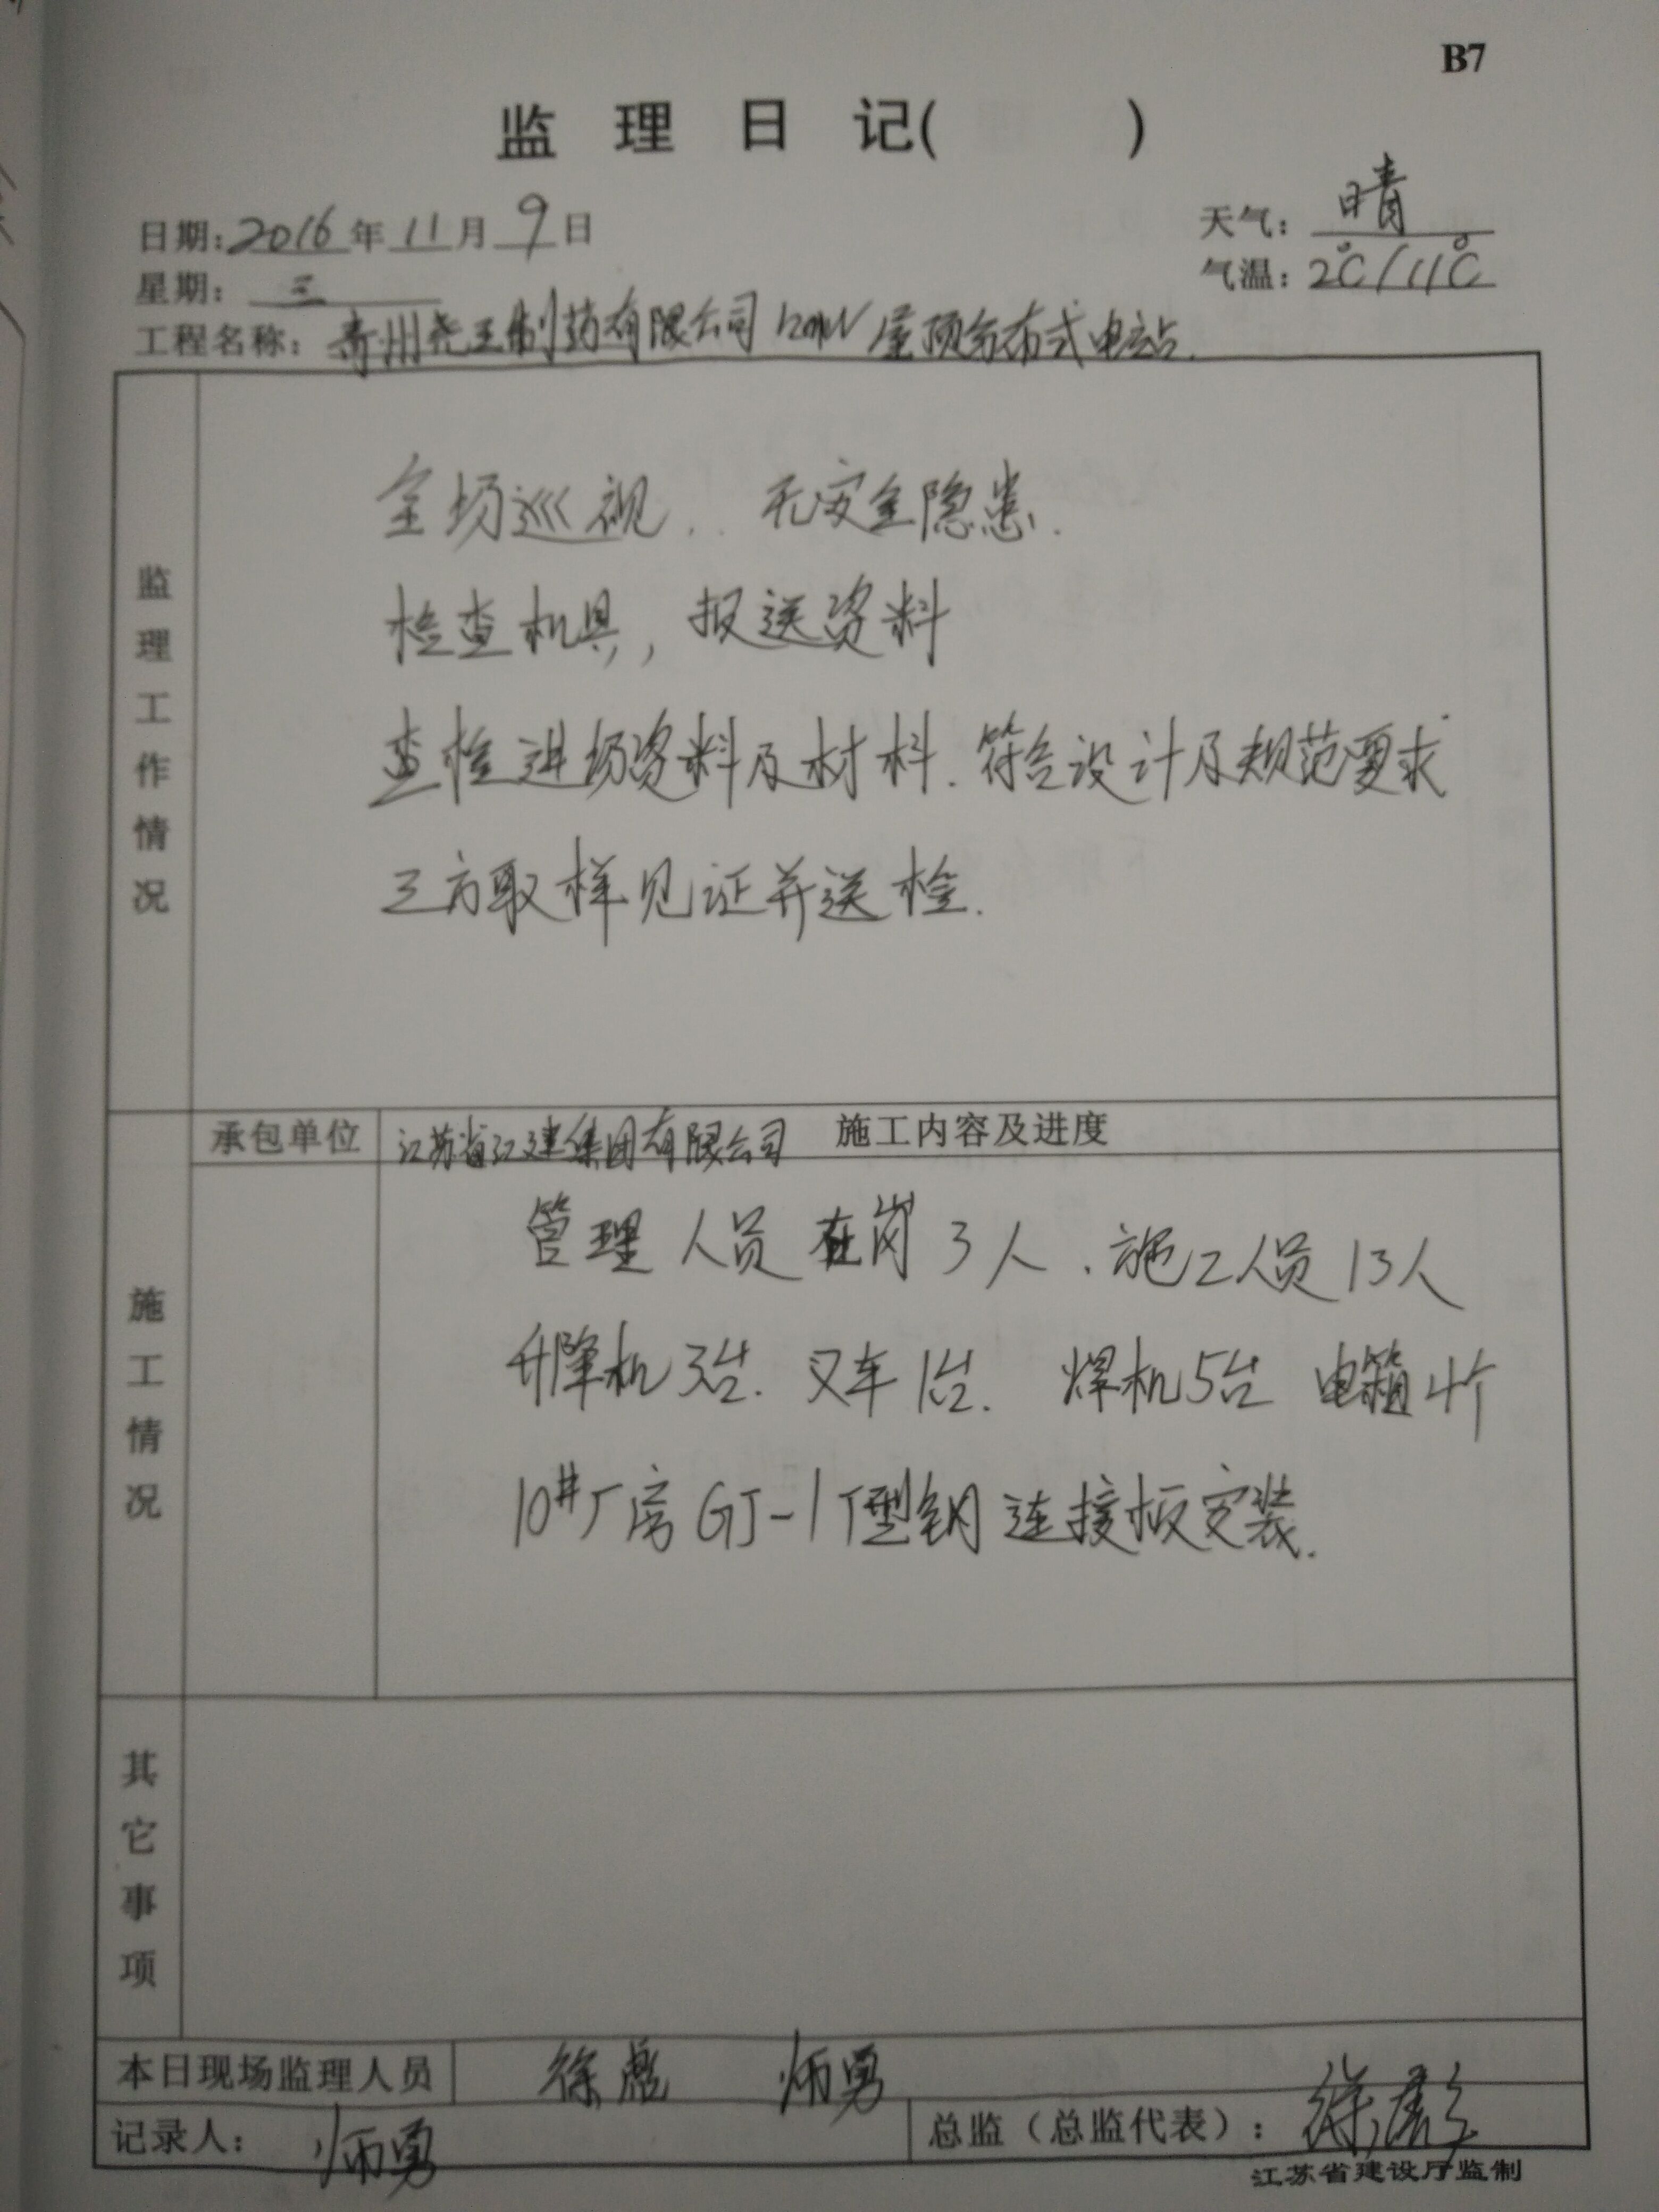 B7
监理日记( )
日期:2016年11月9日
天气:晴
星期:三
气温:2℃/11℃
工程名称:青州尧王制药有限公司 屋顶分布式电站.
监理工作情况
全场巡视.. 无安全隐患.
检查机具,报送资料
查检进场资料及材料.符合设计及规范要求
三方取样见证并送检.
承包单位 江苏省江建集团有限公司 施工内容及进度
施工情况
管理人员在岗3人.施工人员13人
升降机3台.叉车1台. 焊机5台 电箱4个
10#厂房GJ-1 T型钢连接板安装.
其它事项
本日现场监理人员 徐彪 炳勇
记录人: 炳勇
总监(总监代表): 徐彪
江苏省建设厅监制